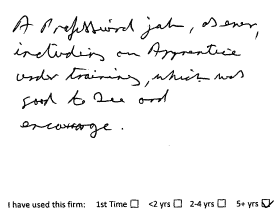 A Professional job, as ever,
including an Apprentice
under training, which was
good to see and
encourage.
I have used this firm: 1st Time ☐ <2 yrs ☐ 2-4 yrs ☐ 5+ yrs ☑